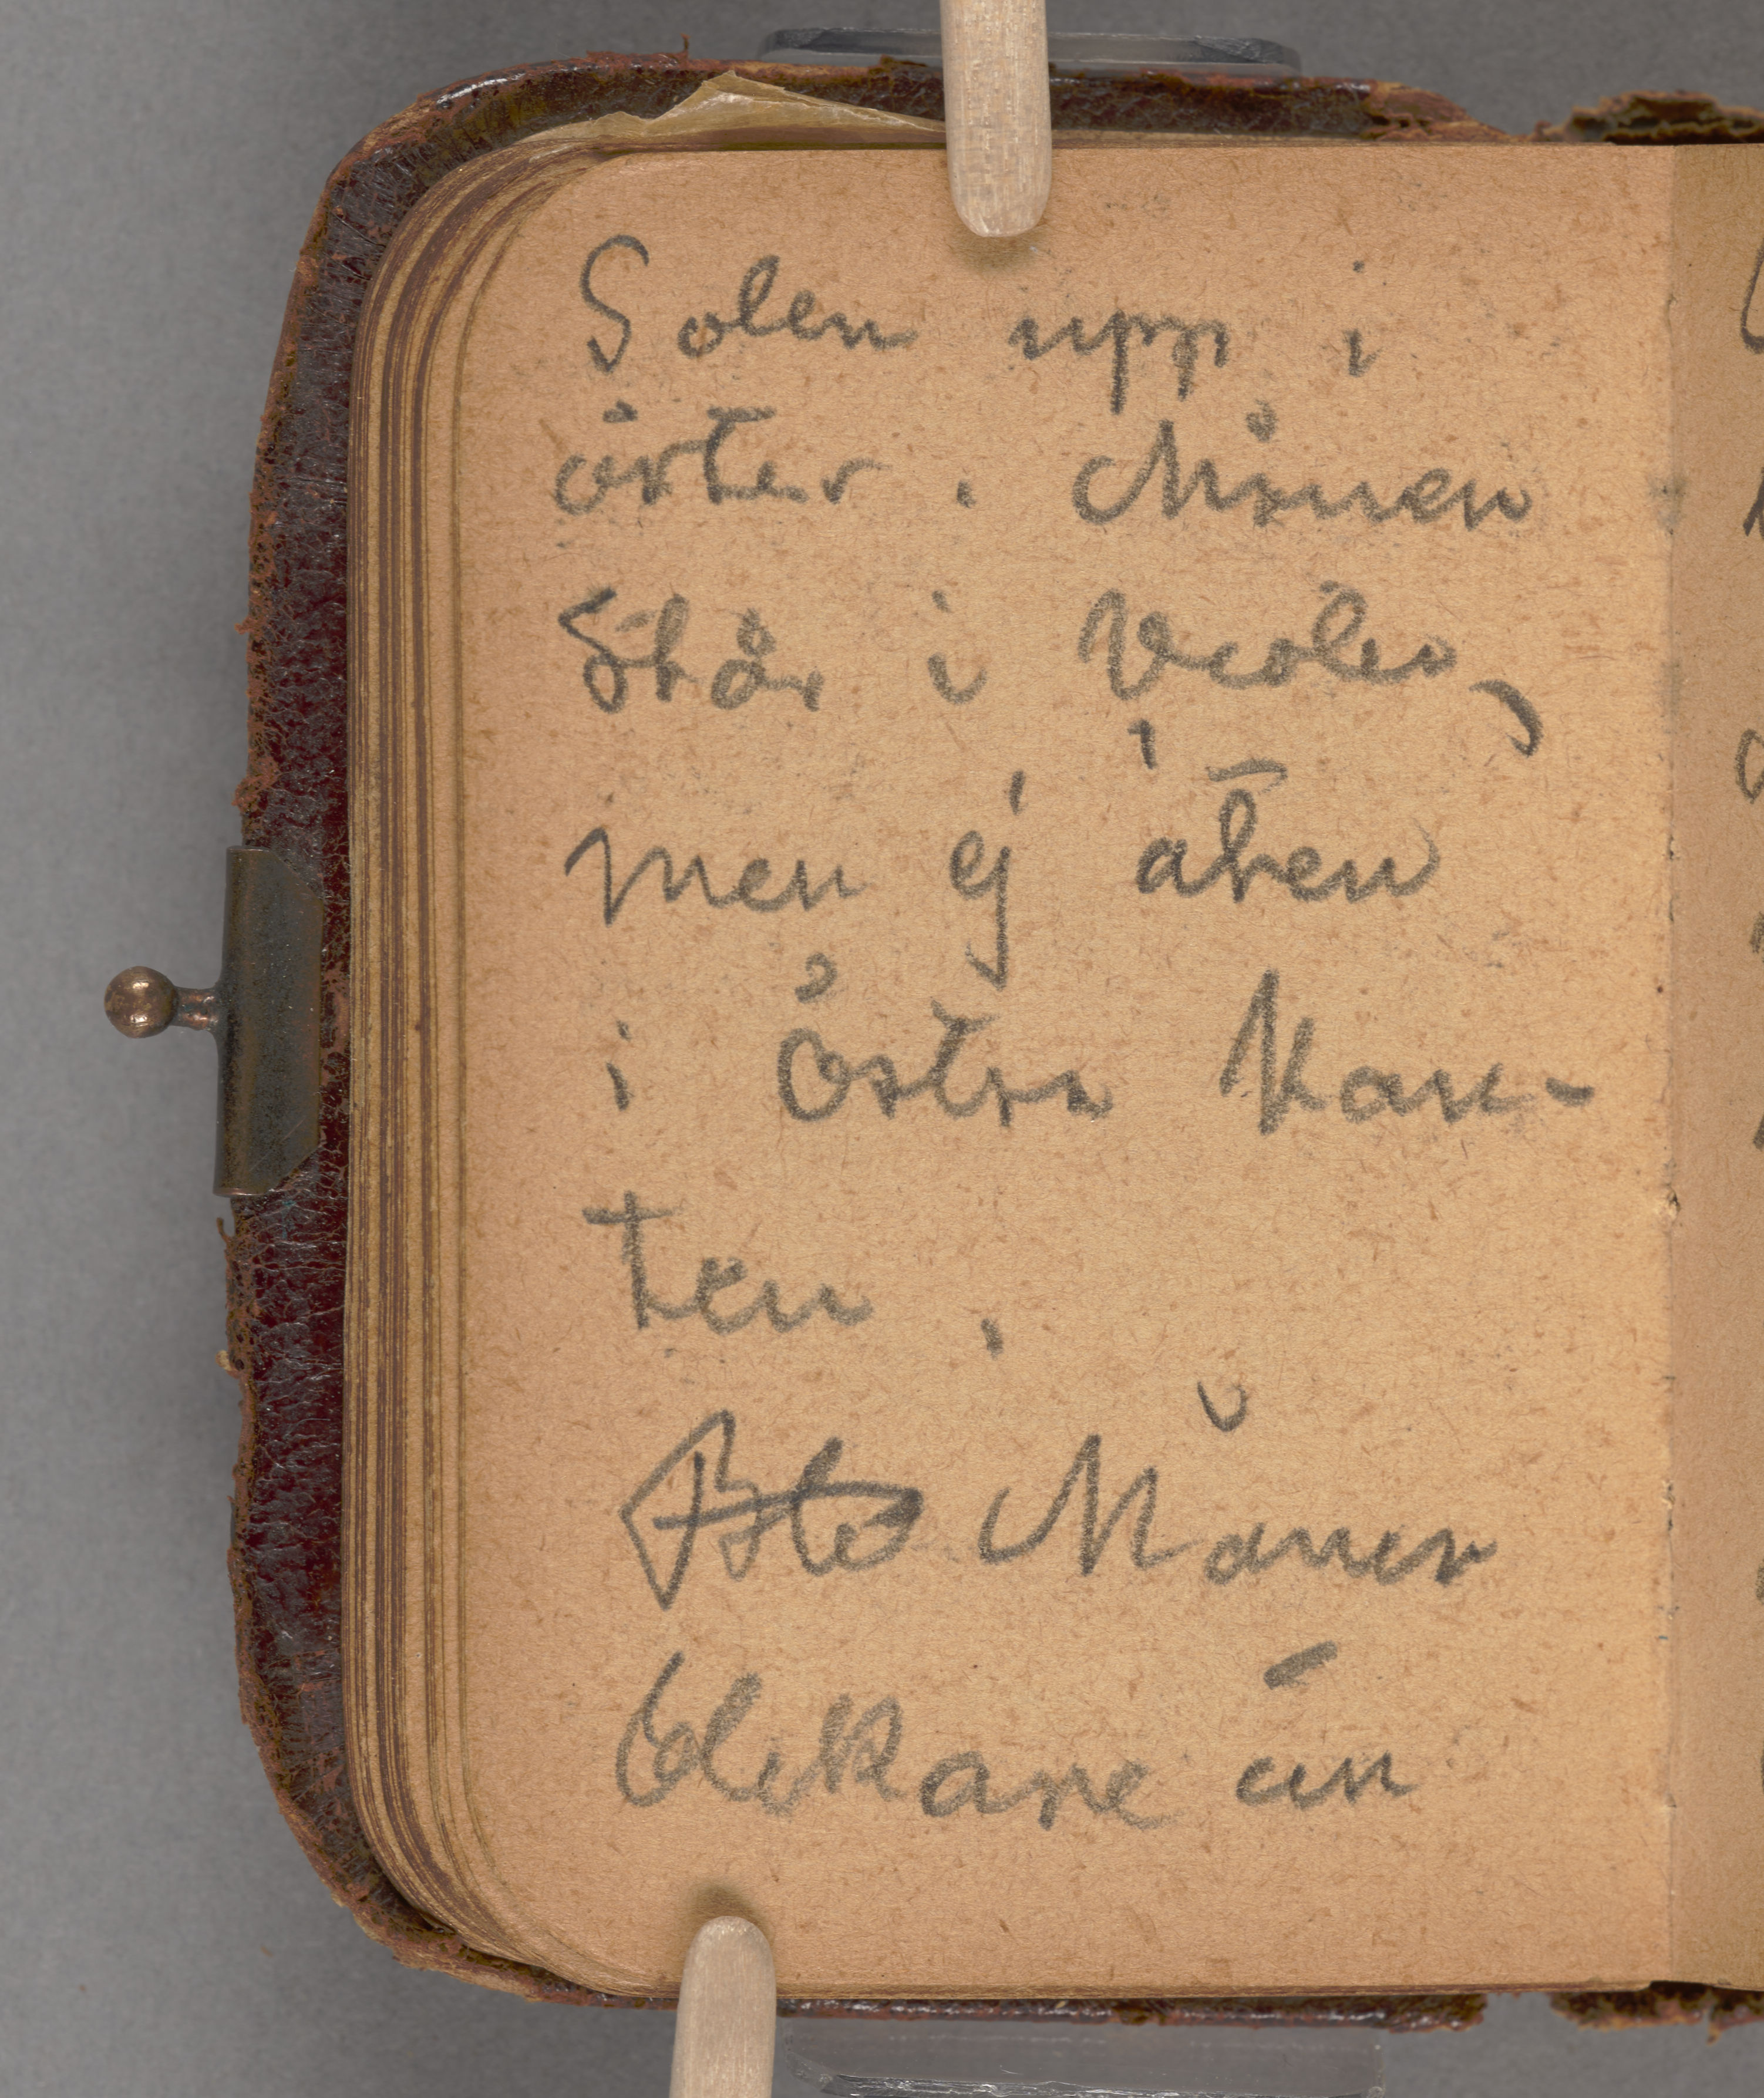 Solen upp i
öster. Månen
står i Violer,
men ej äfven
i Östra Kan-
ten.
Månen
blekare än